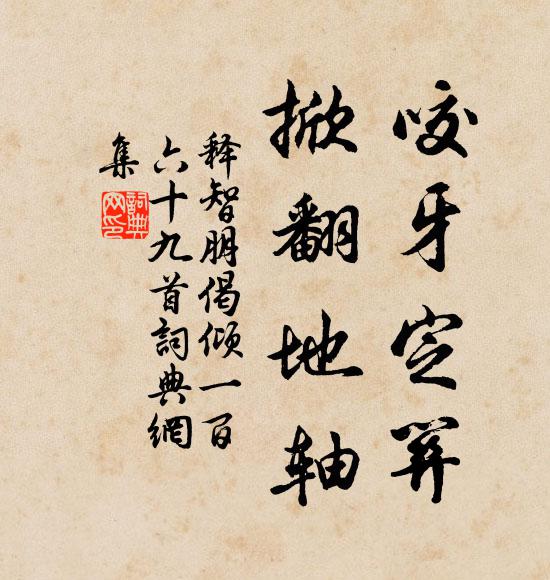 咬牙定筭
掀翻地轴
释智朋偈倾一百
六十九首詞典網
集
詞典
网印